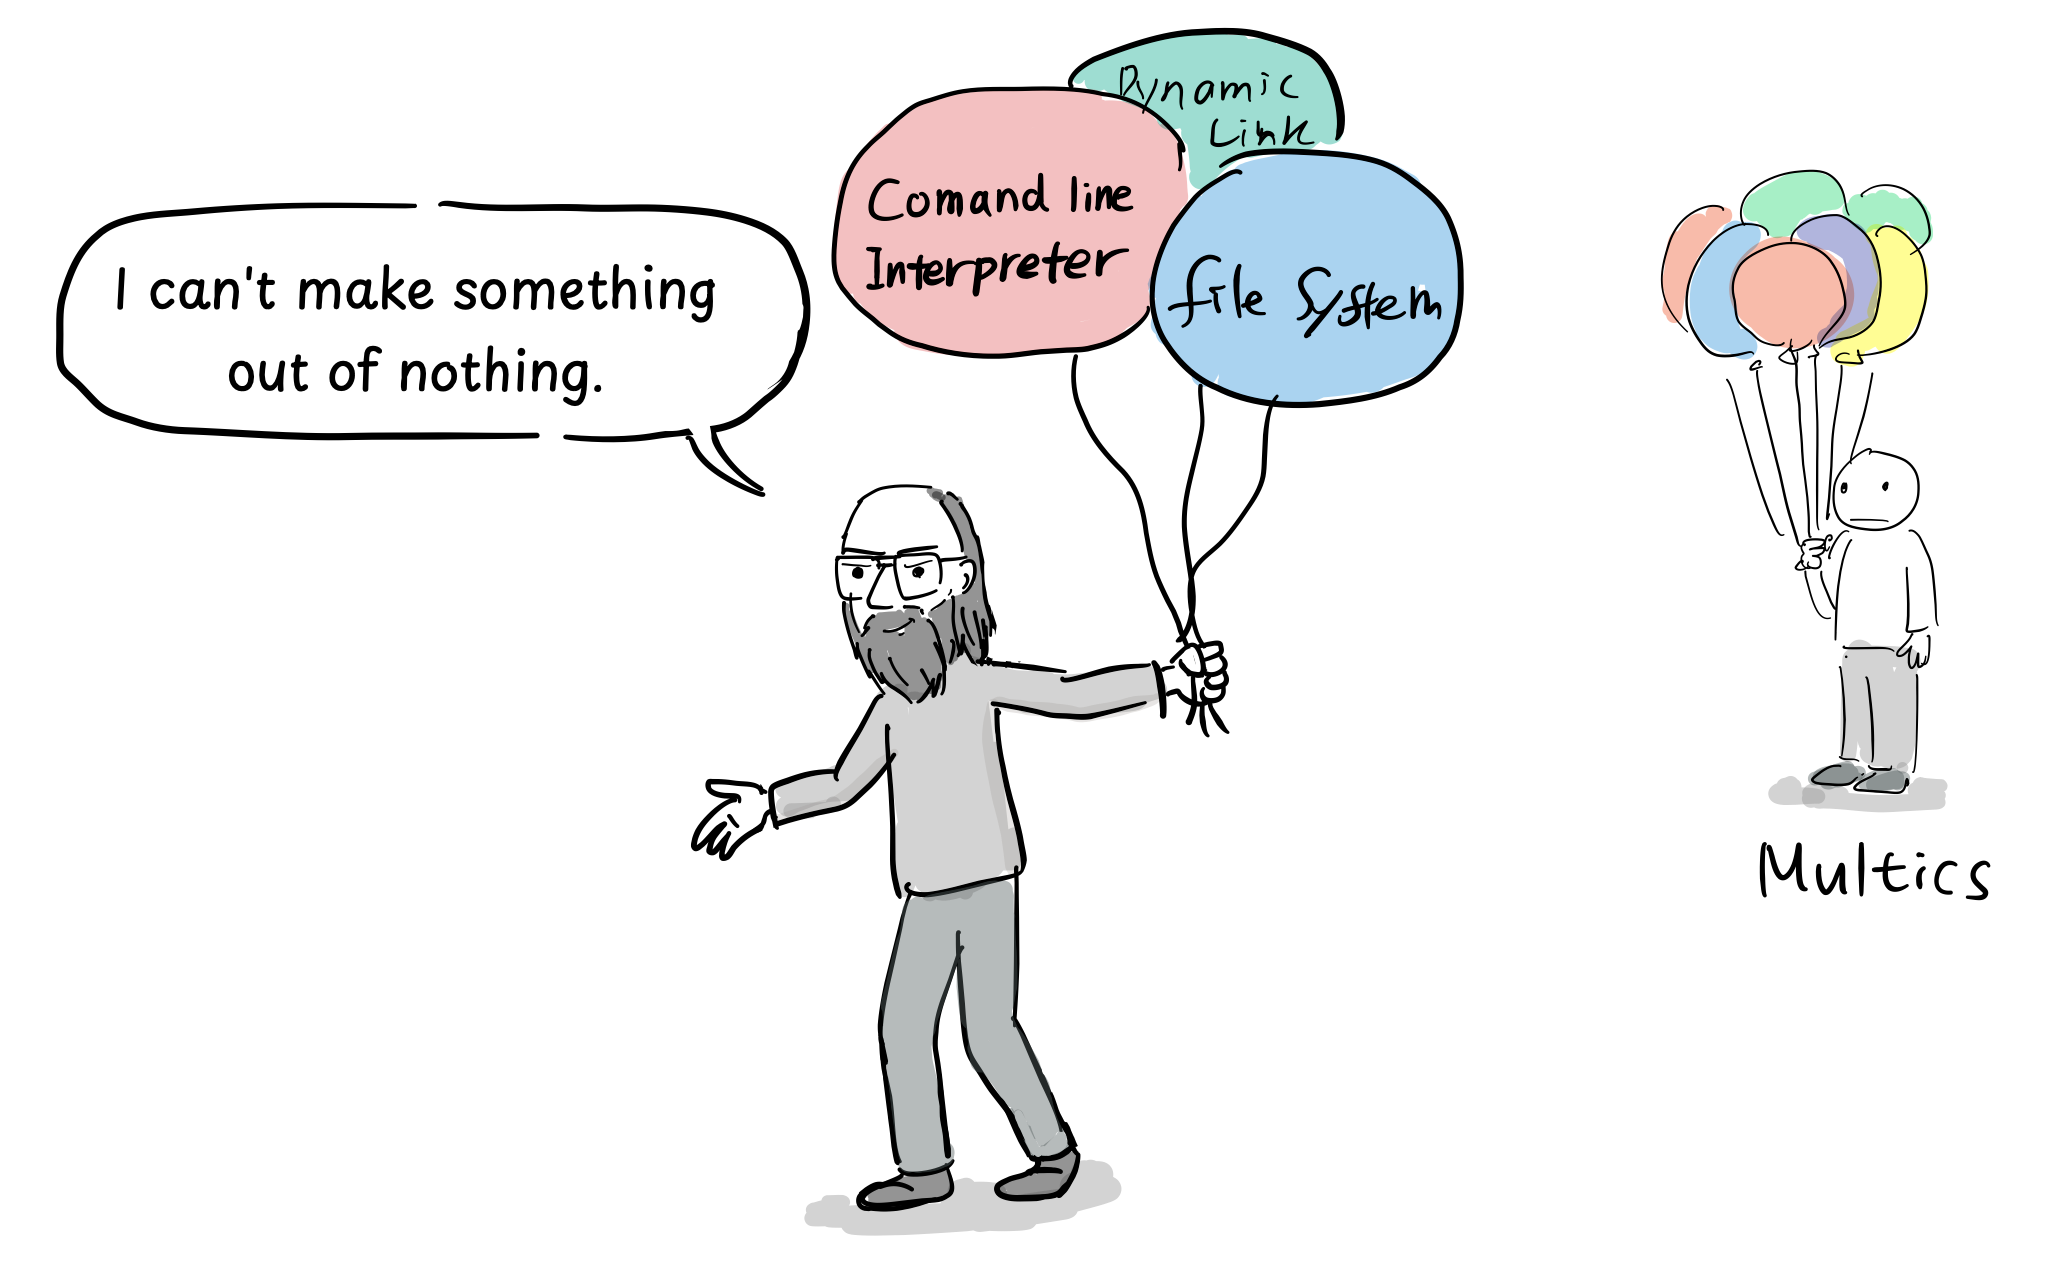 I can't make something
out of nothing.
Dynamic
Link
Comand line
Interpreter
file System
Multics